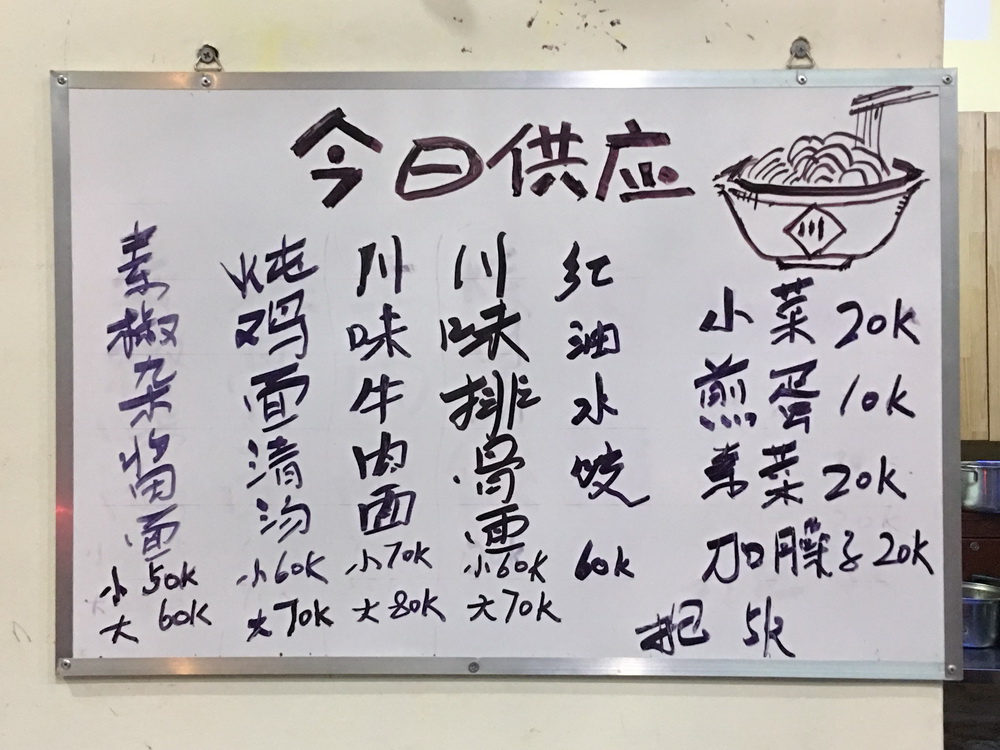 今日供应
川
素椒杂酱面
小 50K
大 60K
炖鸡面清汤
小 60K
大 70K
川味牛肉面
小 70K
大 80K
川味排骨面
小 60K
大 70K
红油水饺
60K
小菜 20K
煎蛋 10K
素菜 20K
加臊子 20K
打包 5K